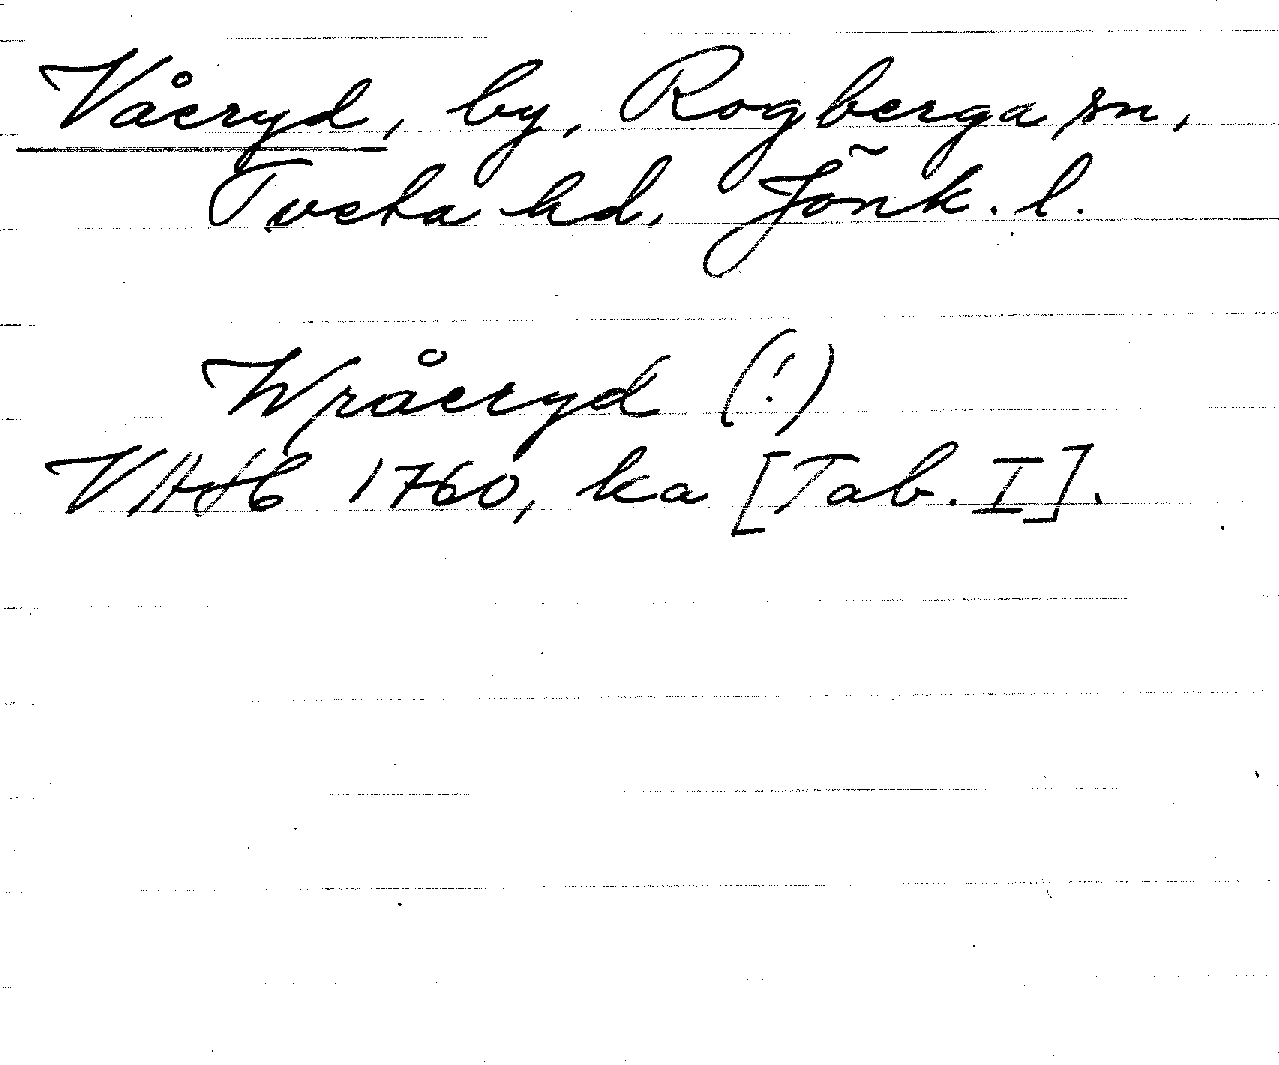 Våeryd, by, Rogberga sn,
Tveta hd. Jönk. l.
Wråeryd (!)
VHAH 1760, ka [Tab. I].